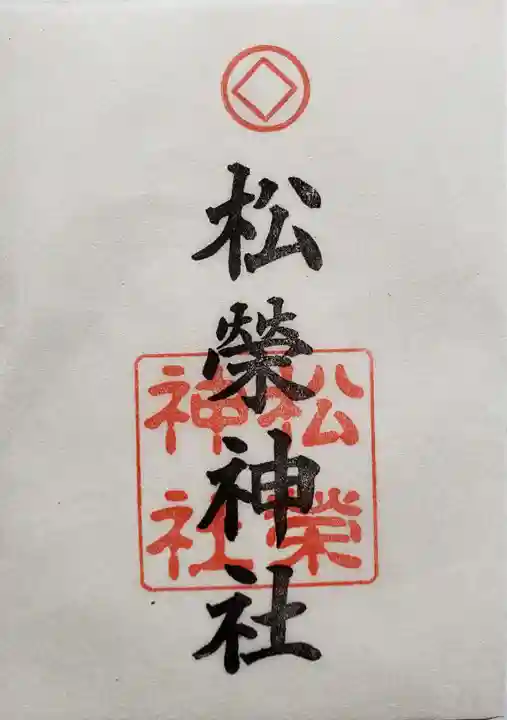 松榮神社
松榮
神社